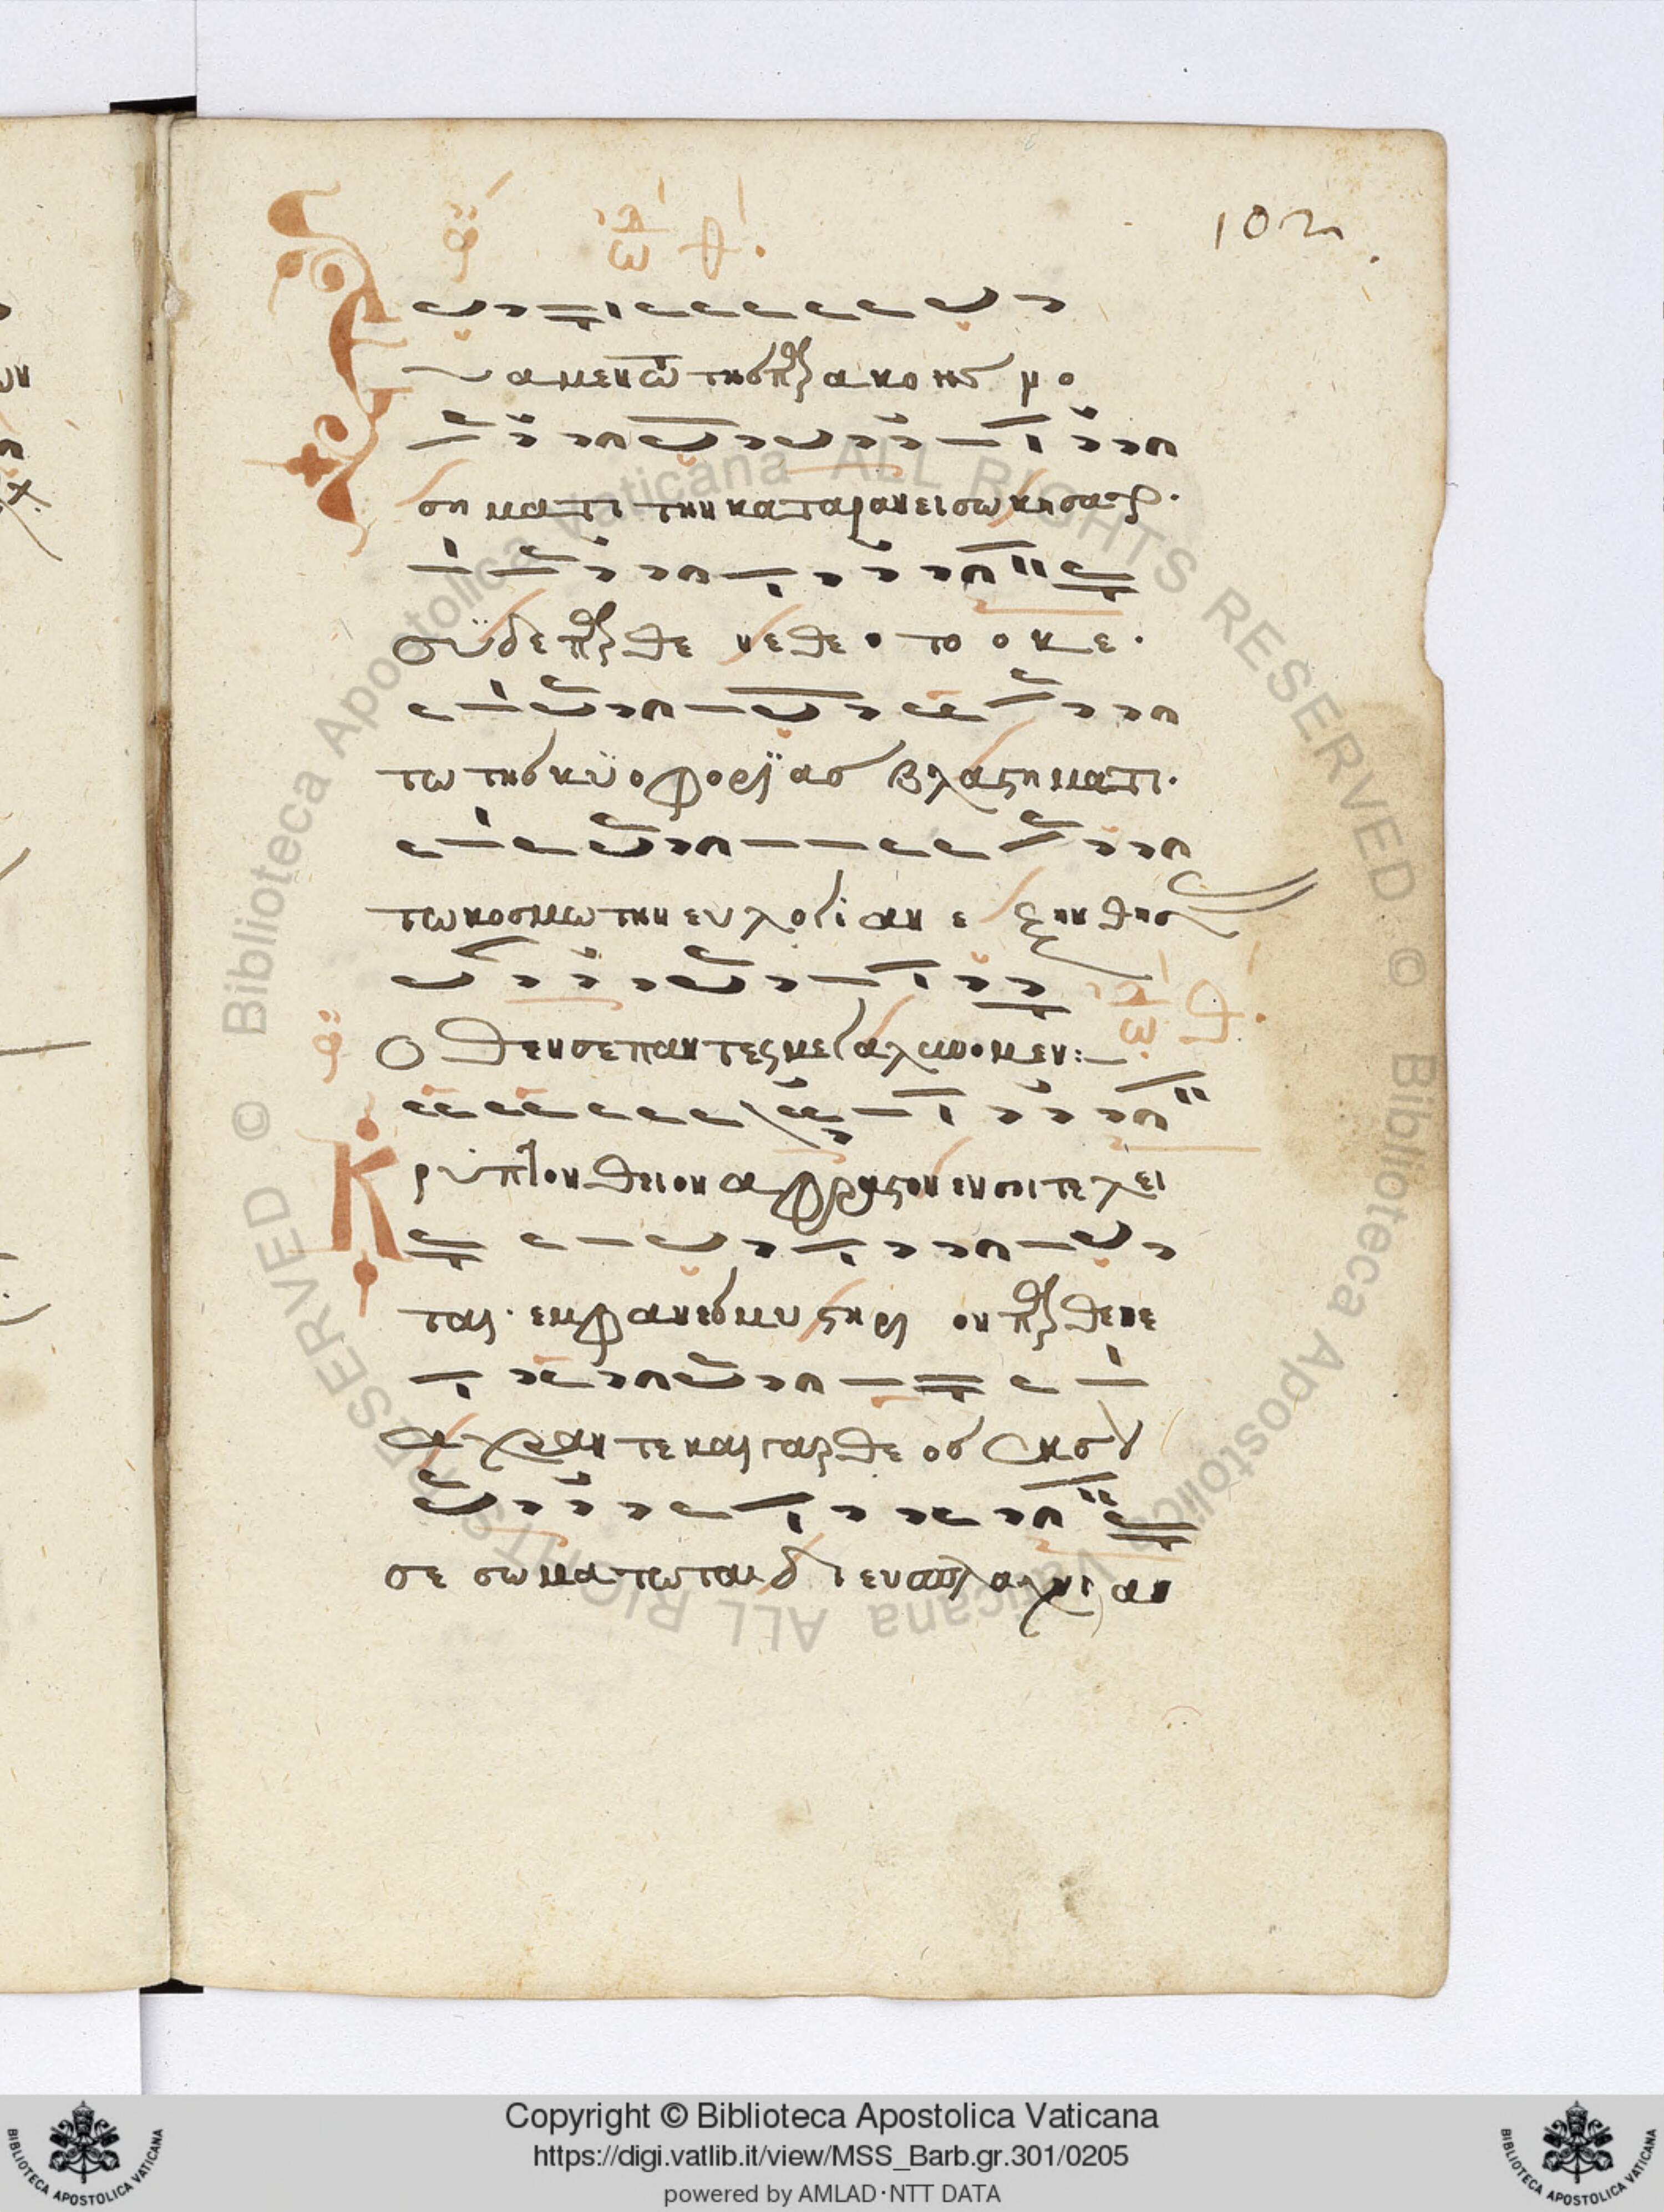 102
Εὔα μεν τω της παρακοης νο
σηματι την καταραν εισωκησατο.
συ δε παρθενε θεοτοκε.
τω της κυοφοριας βλαστηματι.
τω κοσμω την ευλογιαν εξηνθησας
οθεν σε παντες μεγαλυνομεν:—
Κρυπτον θειον αφραστον εν σοι τελει
ται. εμφανες μυστηριον παρθενε
αχραντε και γαρ θεος εκ σου
σεσωματωται δι ευσπλαγχνιαν
Copyright © Biblioteca Apostolica Vaticana
https://digi.vatlib.it/view/MSS_Barb.gr.301/0205
powered by AMLAD·NTT DATA
Biblioteca Apostolica Vaticana ALL RIGHTS RESERVED ©
BIBLIOTECA APOSTOLICA VATICANA
BIBLIOTECA APOSTOLICA VATICANA